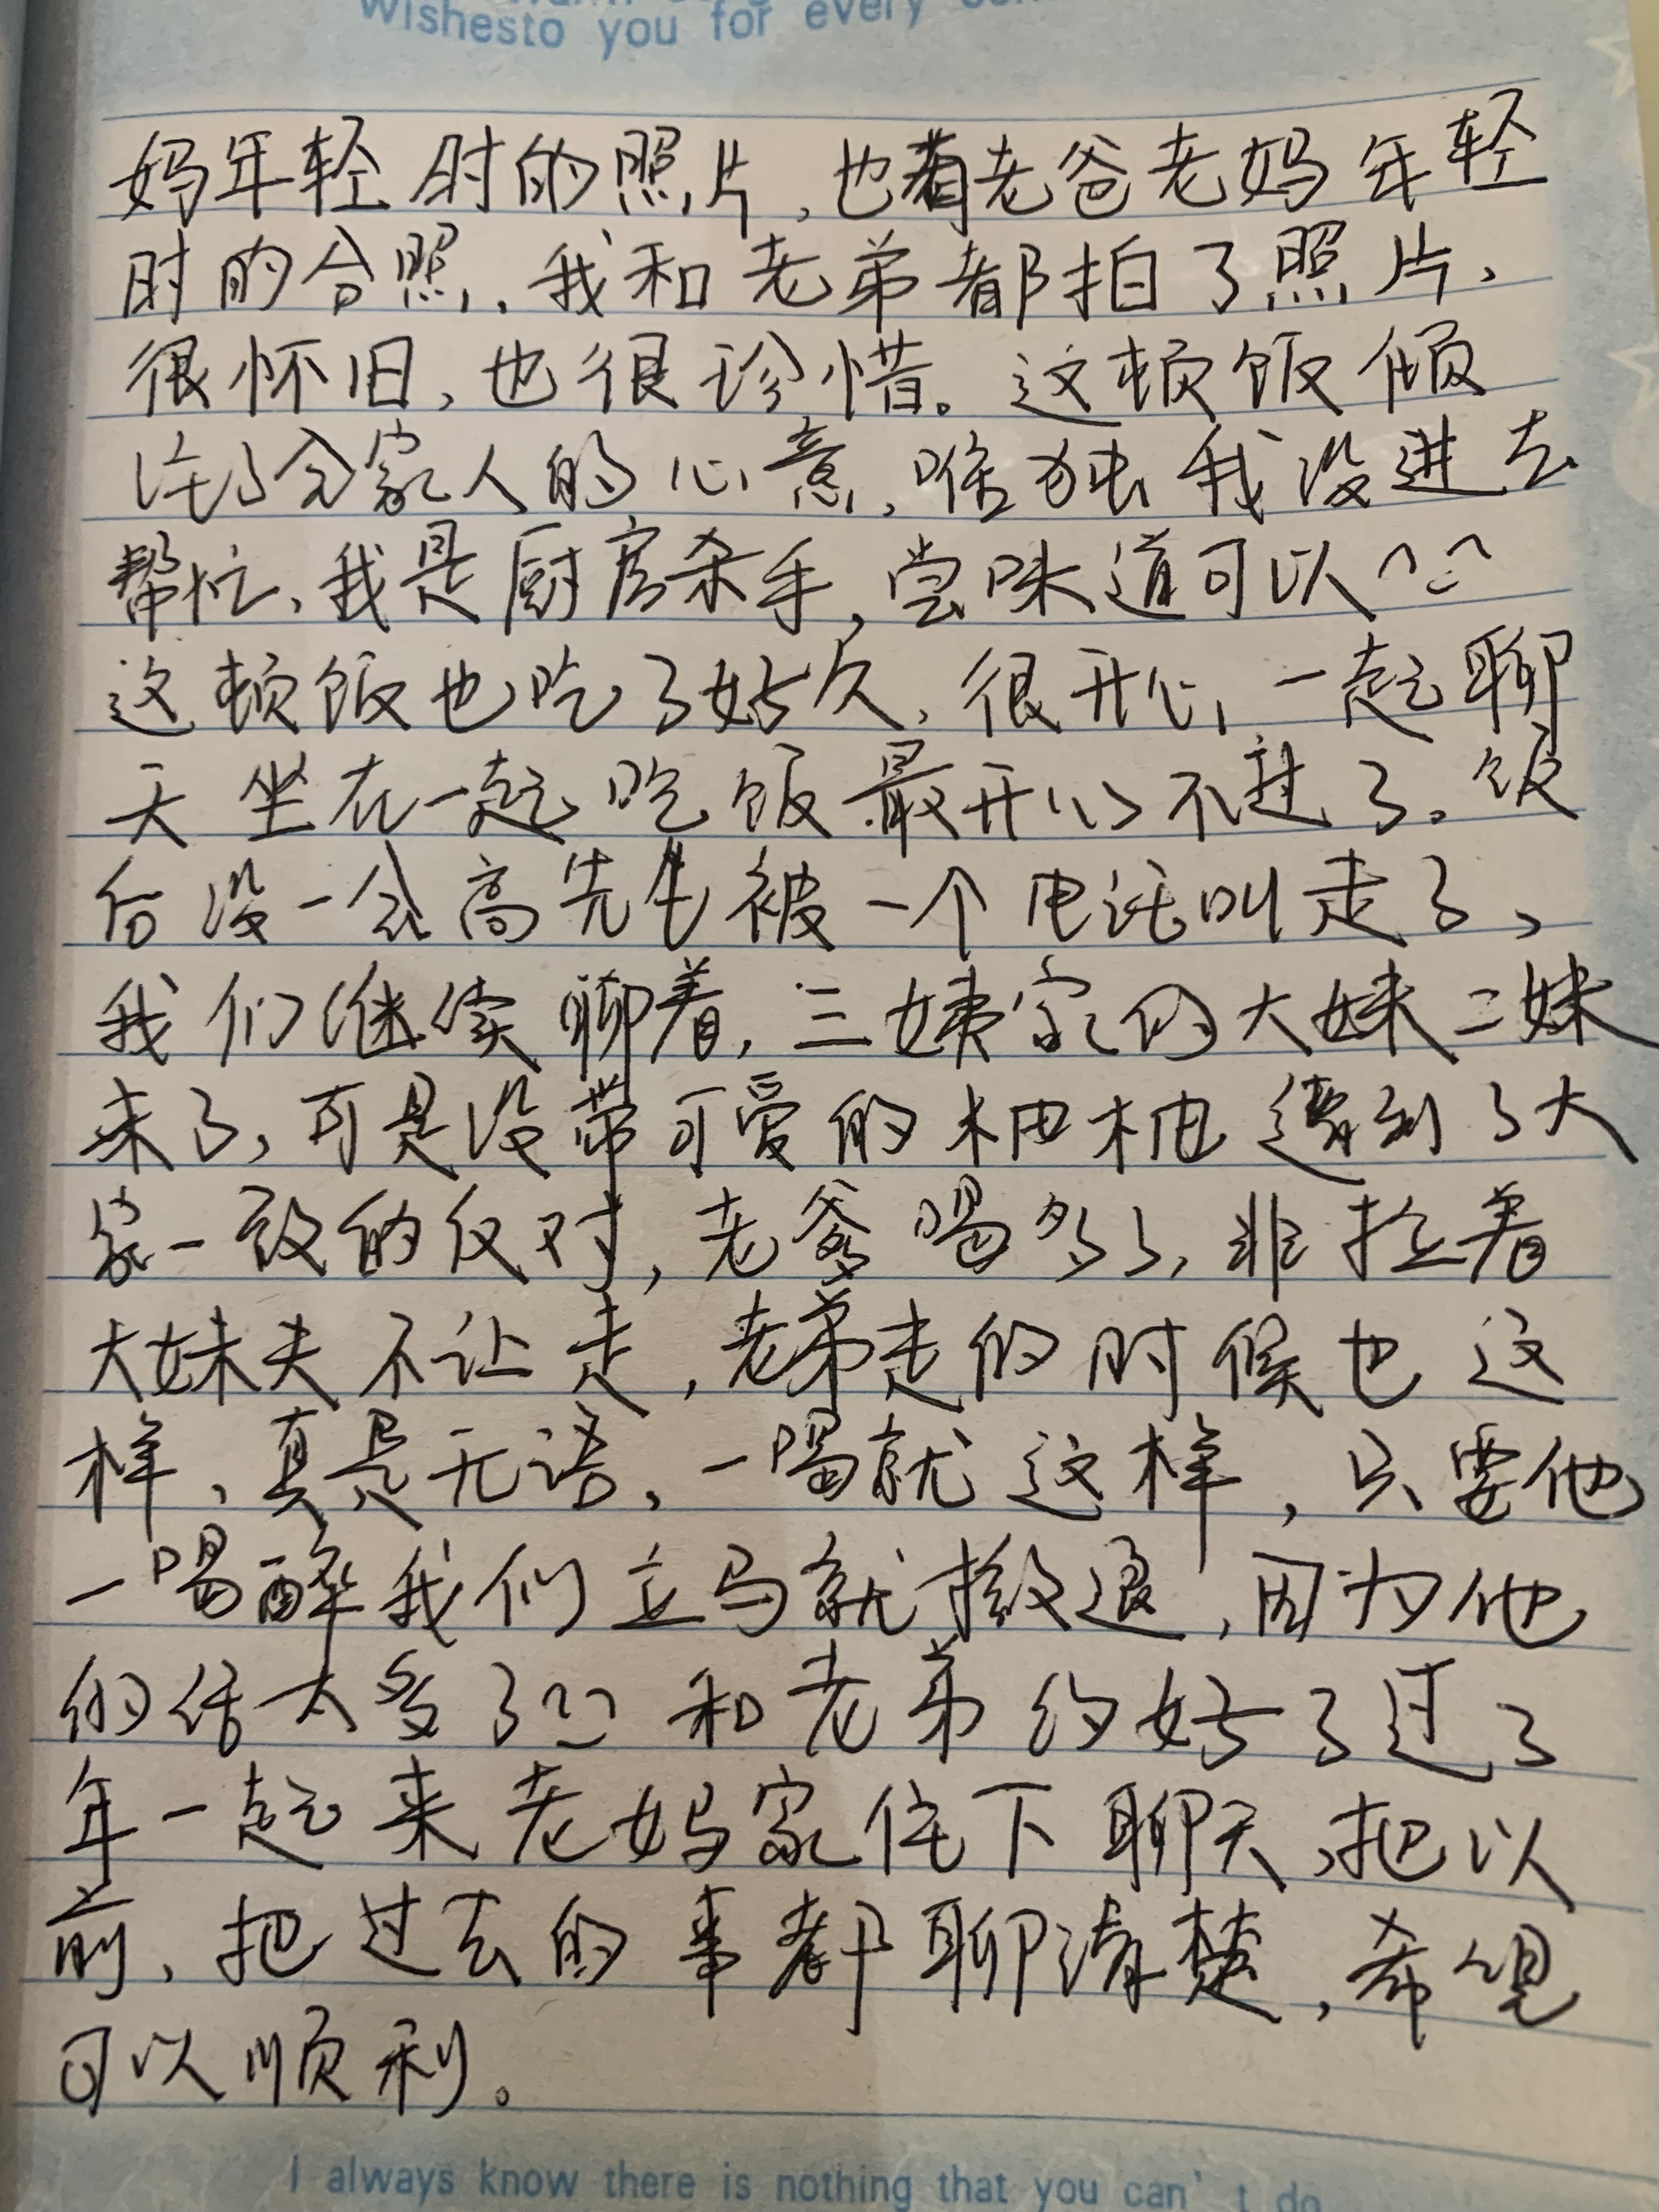 Wishesto you for every
妈年轻时的照片,也有老爸老妈年轻
时的合照,我和老弟都拍了照片,
很怀旧,也很珍惜。这顿饭倾
注了全家人的心意,唯独我没进去
帮忙,我是厨房杀手,尝味道可以^_^
这顿饭也吃了好久,很开心,一起聊
天坐在一起吃饭最开心不过了。饭
后没一会高先生被一个电话叫走了,
我们继续聊着,三姨家的大妹二妹
来了,可是没带可爱的柚柚遭到了大
家一致的反对,老爹喝多了,非拉着
大妹夫不让走,老弟走的时候也这
样,真是无语,一喝就这样,只要他
一喝醉我们立马就撤退,因为他
的话太多了 和老弟约好了过了
年一起来老妈家住下聊天,把以
前,把过去的事都聊清楚,希望
可以顺利。
I always know there is nothing that you can't do